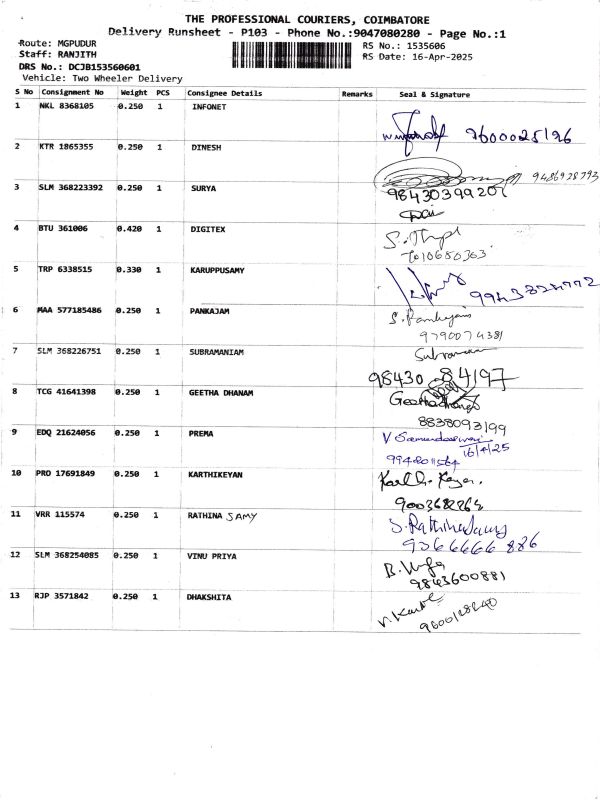 THE PROFESSIONAL COURIERS, COIMBATORE
Delivery Runsheet - P103 - Phone No.:9047080280 - Page No.:1
Route: MGPUDUR
RS No.: 1535606
Staff: RANJITH
RS Date: 16-Apr-2025
DRS No.: DCJB153560601
Vehicle: Two Wheeler Delivery
S No Consignment No Weight PCS Consignee Details Remarks Seal & Signature
1 NKL 8368105 0.250 1 INFONET
9600025126
2 KTR 1865355 0.250 1 DINESH
9486928793
3 SLM 368223392 0.250 1 SURYA
4 BTU 361006 0.420 1 DIGITEX
5 TRP 6338515 0.330 1 KARUPPUSAMY
6 MAA 577185486 0.250 1 PANKAJAM
S. Pankajam
9790074381
7 SLM 368226751 0.250 1 SUBRAMANIAM
98430 84197
8 TCG 41641398 0.250 1 GEETHA DHANAM
8838093199
9 EDQ 21624056 0.250 1 PREMA
16/4/25
9948011564
10 PRO 17691849 0.250 1 KARTHIKEYAN
11 VRR 115574 0.250 1 RATHINA SAMY
9366666 886
12 SLM 368254085 0.250 1 VINU PRIYA
9843600881
13 RJP 3571842 0.250 1 DHAKSHITA
9600128240